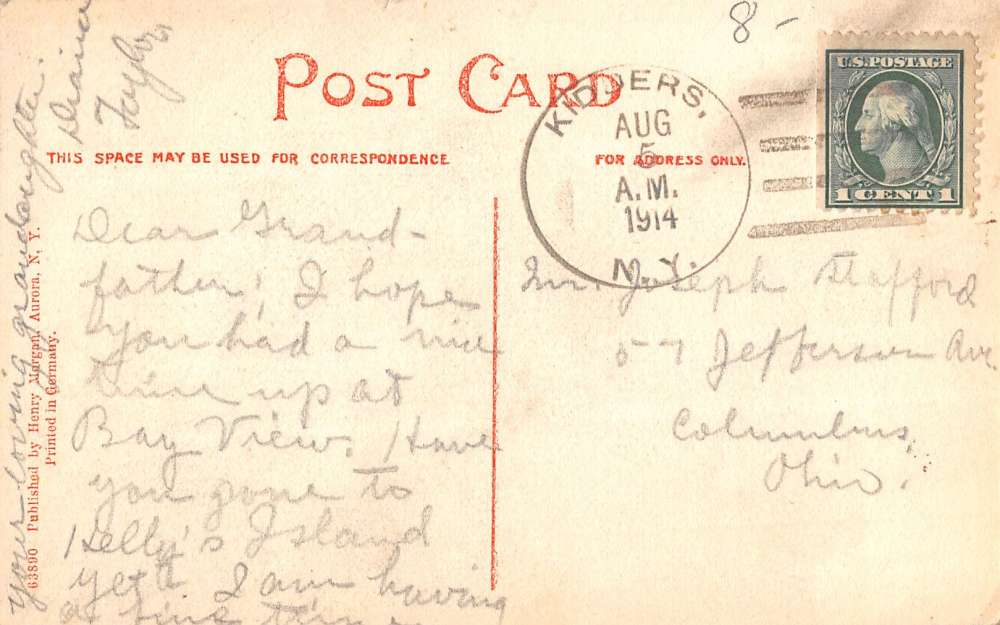 8-
POST CARD
THIS SPACE MAY BE USED FOR CORRESPONDENCE
FOR ADDRESS ONLY.
KIDDERS,
AUG
5
A.M.
1914
N.Y.
U.S. POSTAGE
1 CENT 1
Dear Grand-
father; I hope
you had a nice
time up at
Bay View. Have
you gone to
Kelly's Island
yet? I am having
a fine time
your loving granddaughter.
Taylor
Mr. Joseph Stafford
57 Jefferson Ave.
Columbus,
Ohio.
63890 Published by Henry Morgan, Aurora, N. Y.
Printed in Germany.